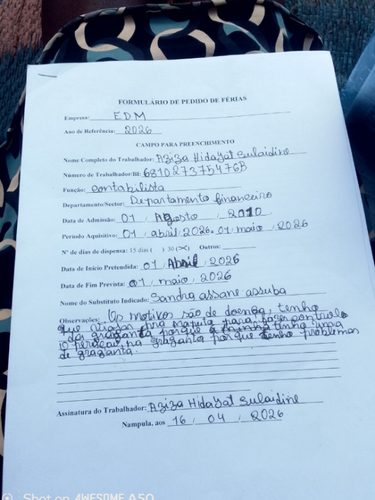 FORMULÁRIO DE PEDIDO DE FÉRIAS
Empresa: EDM
Ano de Referência: 2026
CAMPO PARA PREENCHIMENTO
Nome Completo do Trabalhador: Aziza Hidayat Sulaidine
Número de Trabalhador/BI: 681027375476B
Função: contabilista
Departamento/Sector: Departamento financeiro
Data de Admissão: 01 / Agosto / 2010
Período Aquisitivo: 01 / abril 2026, 01 maio / 2026
Nº de dias de dispensa: 15 dias ( ) 30 (X) Outros:
Data de Início Pretendida: 01 / Abril / 2026
Data de Fim Prevista: 01 / maio / 2026
Nome do Substituto Indicado: Sandra assane assuba
Observações: Os motivos são de doença, tenho
que para para fazer controlo
da graganta porque a minha tenho uma
na graganta porque tenho problemas
de graganta.
Assinatura do Trabalhador: Aziza Hidayat Sulaidine
Nampula, aos 16 / 04 / 2026
Shot on AWESOME A50